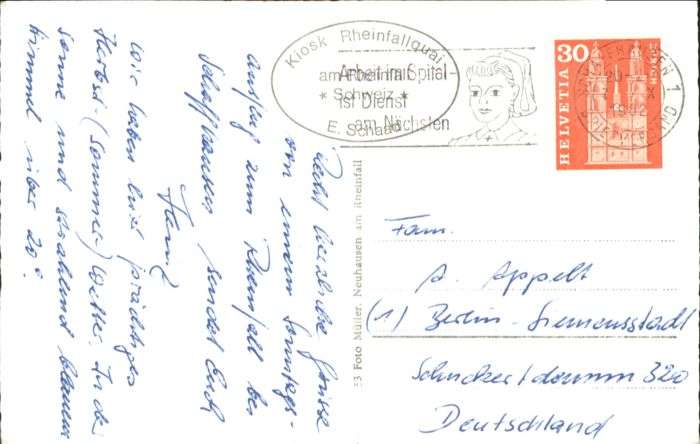 Recht herzliche Grüsse
von einem Sonntags-
ausflug zum Rheinfall bei
Schaffhausen sendet Euch
Heinz
Wir haben hier prächtiges
Herbst (Sommer) Wetter. In der
Sonne und strahlend blauem
Himmel über 20°
Kiosk Rheinfallquai
am Rheinfall
Schweiz
E. Schaad
Arbeit im Spital -
ist Dienst
am Nächsten
30
HELVETIA
53 Foto Müller, Neuhausen am Rheinfall
Fam.
A. Appelt
(1) Berlin-Siemensstadt
Schuckertdamm 320
Deutschland